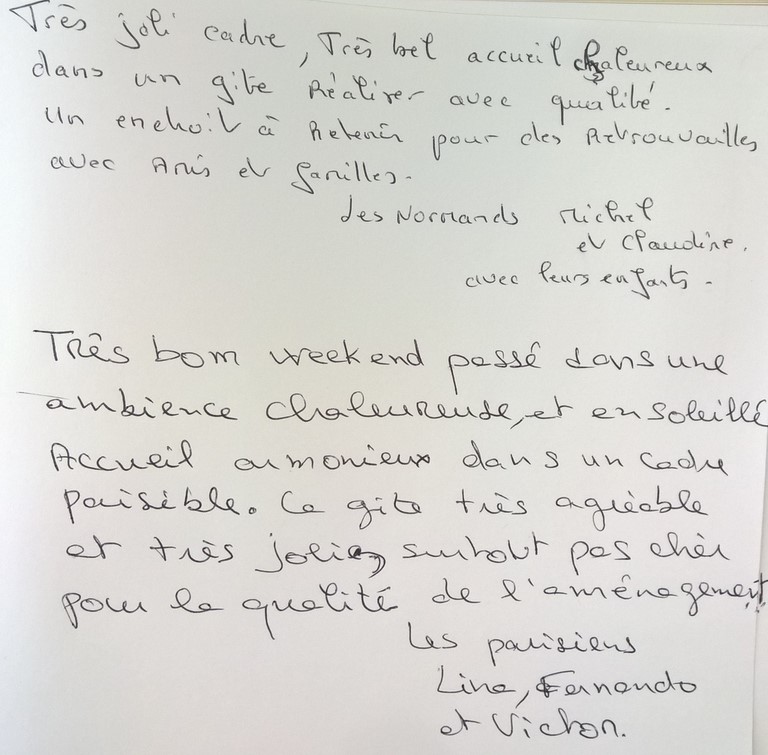 Très joli cadre, Très bel accueil chaleureux
dans un gite Réaliser avec qualité.
Un endroit à Retenir pour des Retrouvailles
avec Amis et familles.
des Normands Michel
et Claudine.
avec leurs enfants.
Très bom weekend passé dans une
ambience chaleureuse, et ensoleillé
Accueil armonieux dans un cadre
paisible. Ce gite très agréable
et très jolie, surtout pas chèr
pour la qualité de l'aménagement.
Les parisiens
Line, Fernando
et Victor.